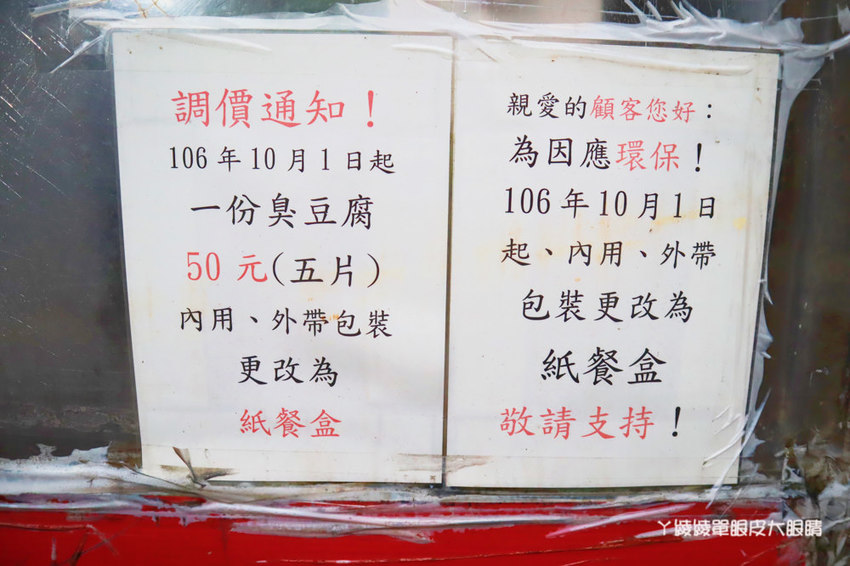 調價通知！
106年10月1日起
一份臭豆腐
50元(五片)
內用、外帶包裝
更改為
紙餐盒
親愛的顧客您好：
為因應環保！
106年10月1日
起、內用、外帶
包裝更改為
紙餐盒
敬請支持！
ㄚ綾綾單眼皮大眼睛